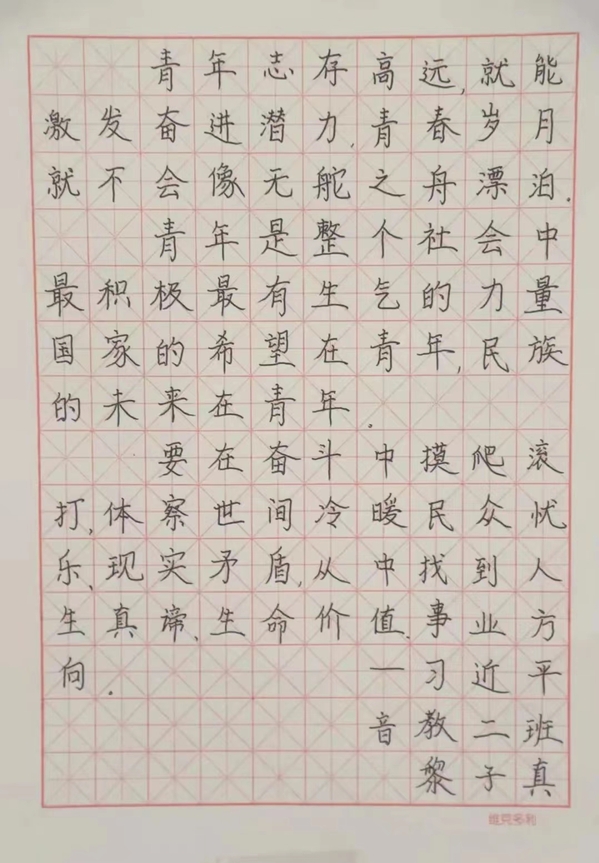 青年志存高远,就能
激发奋进潜力,青春岁月
就不会像无舵之舟漂泊.
青年是整个社会中
最积极最有生气的力量
国家的希望在青年,民族
的未来在青年.
要在奋斗中摸爬滚
打,体察世间冷暖民众忧
乐、现实矛盾,从中找到人
生真谛、生命价值、事业方
向. —习近平
音教二班
黎子真
维克多利